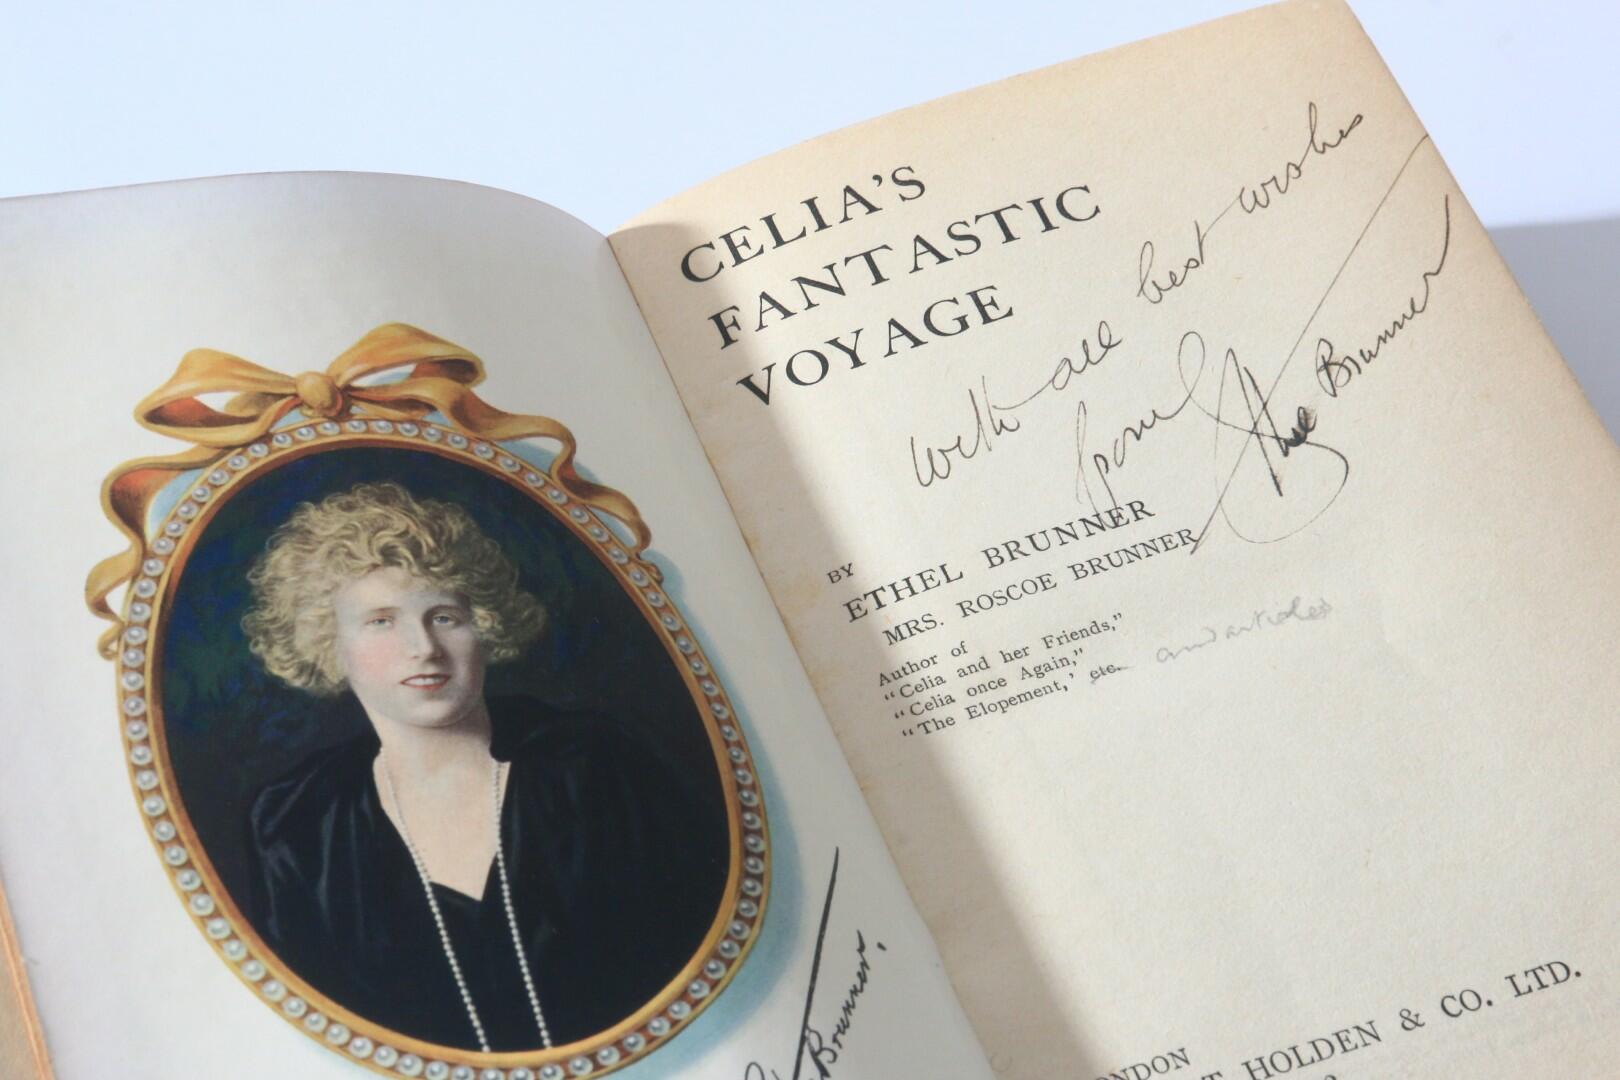 CELIA'S
FANTASTIC
VOYAGE
With all best wishes
from
Ethel Brunner
BY
ETHEL BRUNNER
MRS. ROSCOE BRUNNER
Author of
"Celia and her Friends,"
"Celia once Again,"
"The Elopement,' etc. and articles
LONDON
HOLDEN & CO. LTD.
Brunner,